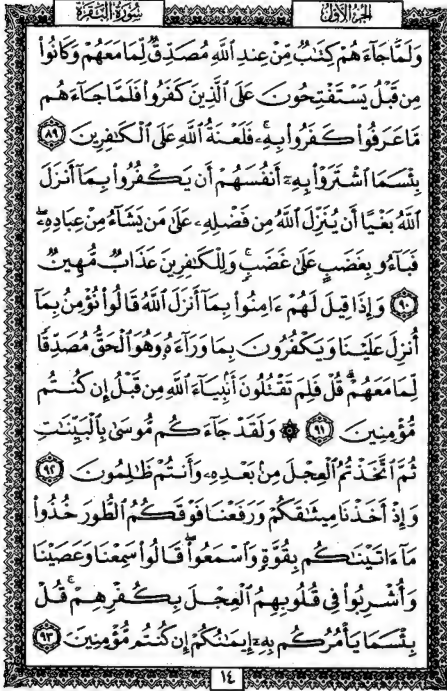 سُورَةُ البَقَرَةِ الجُزْءُ الأَوَّلُ
وَلَمَّا جَآءَهُمْ كِتَٰبٌ مِّنْ عِندِ ٱللَّهِ مُصَدِّقٌ لِّمَا مَعَهُمْ وَكَانُوا۟
مِن قَبْلُ يَسْتَفْتِحُونَ عَلَى ٱلَّذِينَ كَفَرُوا۟ فَلَمَّا جَآءَهُم
مَّا عَرَفُوا۟ كَفَرُوا۟ بِهِۦ ۚ فَلَعْنَةُ ٱللَّهِ عَلَى ٱلْكَٰفِرِينَ ٨٩
بِئْسَمَا ٱشْتَرَوْا۟ بِهِۦٓ أَنفُسَهُمْ أَن يَكْفُرُوا۟ بِمَآ أَنزَلَ
ٱللَّهُ بَغْيًا أَن يُنَزِّلَ ٱللَّهُ مِن فَضْلِهِۦ عَلَىٰ مَن يَشَآءُ مِنْ عِبَادِهِۦ ۖ
فَبَآءُو بِغَضَبٍ عَلَىٰ غَضَبٍ ۚ وَلِلْكَٰفِرِينَ عَذَابٌ مُّهِينٌ
٩٠ وَإِذَا قِيلَ لَهُمْ ءَامِنُوا۟ بِمَآ أَنزَلَ ٱللَّهُ قَالُوا۟ نُؤْمِنُ بِمَآ
أُنزِلَ عَلَيْنَا وَيَكْفُرُونَ بِمَا وَرَآءَهُۥ وَهُوَ ٱلْحَقُّ مُصَدِّقًا
لِّمَا مَعَهُمْ ۗ قُلْ فَلِمَ تَقْتُلُونَ أَنۢبِيَآءَ ٱللَّهِ مِن قَبْلُ إِن كُنتُم
مُّؤْمِنِينَ ٩١ ۞ وَلَقَدْ جَآءَكُم مُّوسَىٰ بِٱلْبَيِّنَٰتِ
ثُمَّ ٱتَّخَذْتُمُ ٱلْعِجْلَ مِنۢ بَعْدِهِۦ وَأَنتُمْ ظَٰلِمُونَ ٩٢
وَإِذْ أَخَذْنَا مِيثَٰقَكُمْ وَرَفَعْنَا فَوْقَكُمُ ٱلطُّورَ خُذُوا۟
مَآ ءَاتَيْنَٰكُم بِقُوَّةٍ وَٱسْمَعُوا۟ ۖ قَالُوا۟ سَمِعْنَا وَعَصَيْنَا
وَأُشْرِبُوا۟ فِى قُلُوبِهِمُ ٱلْعِجْلَ بِكُفْرِهِمْ ۚ قُلْ
بِئْسَمَا يَأْمُرُكُم بِهِۦٓ إِيمَٰنُكُمْ إِن كُنتُم مُّؤْمِنِينَ ٩٣
١٤